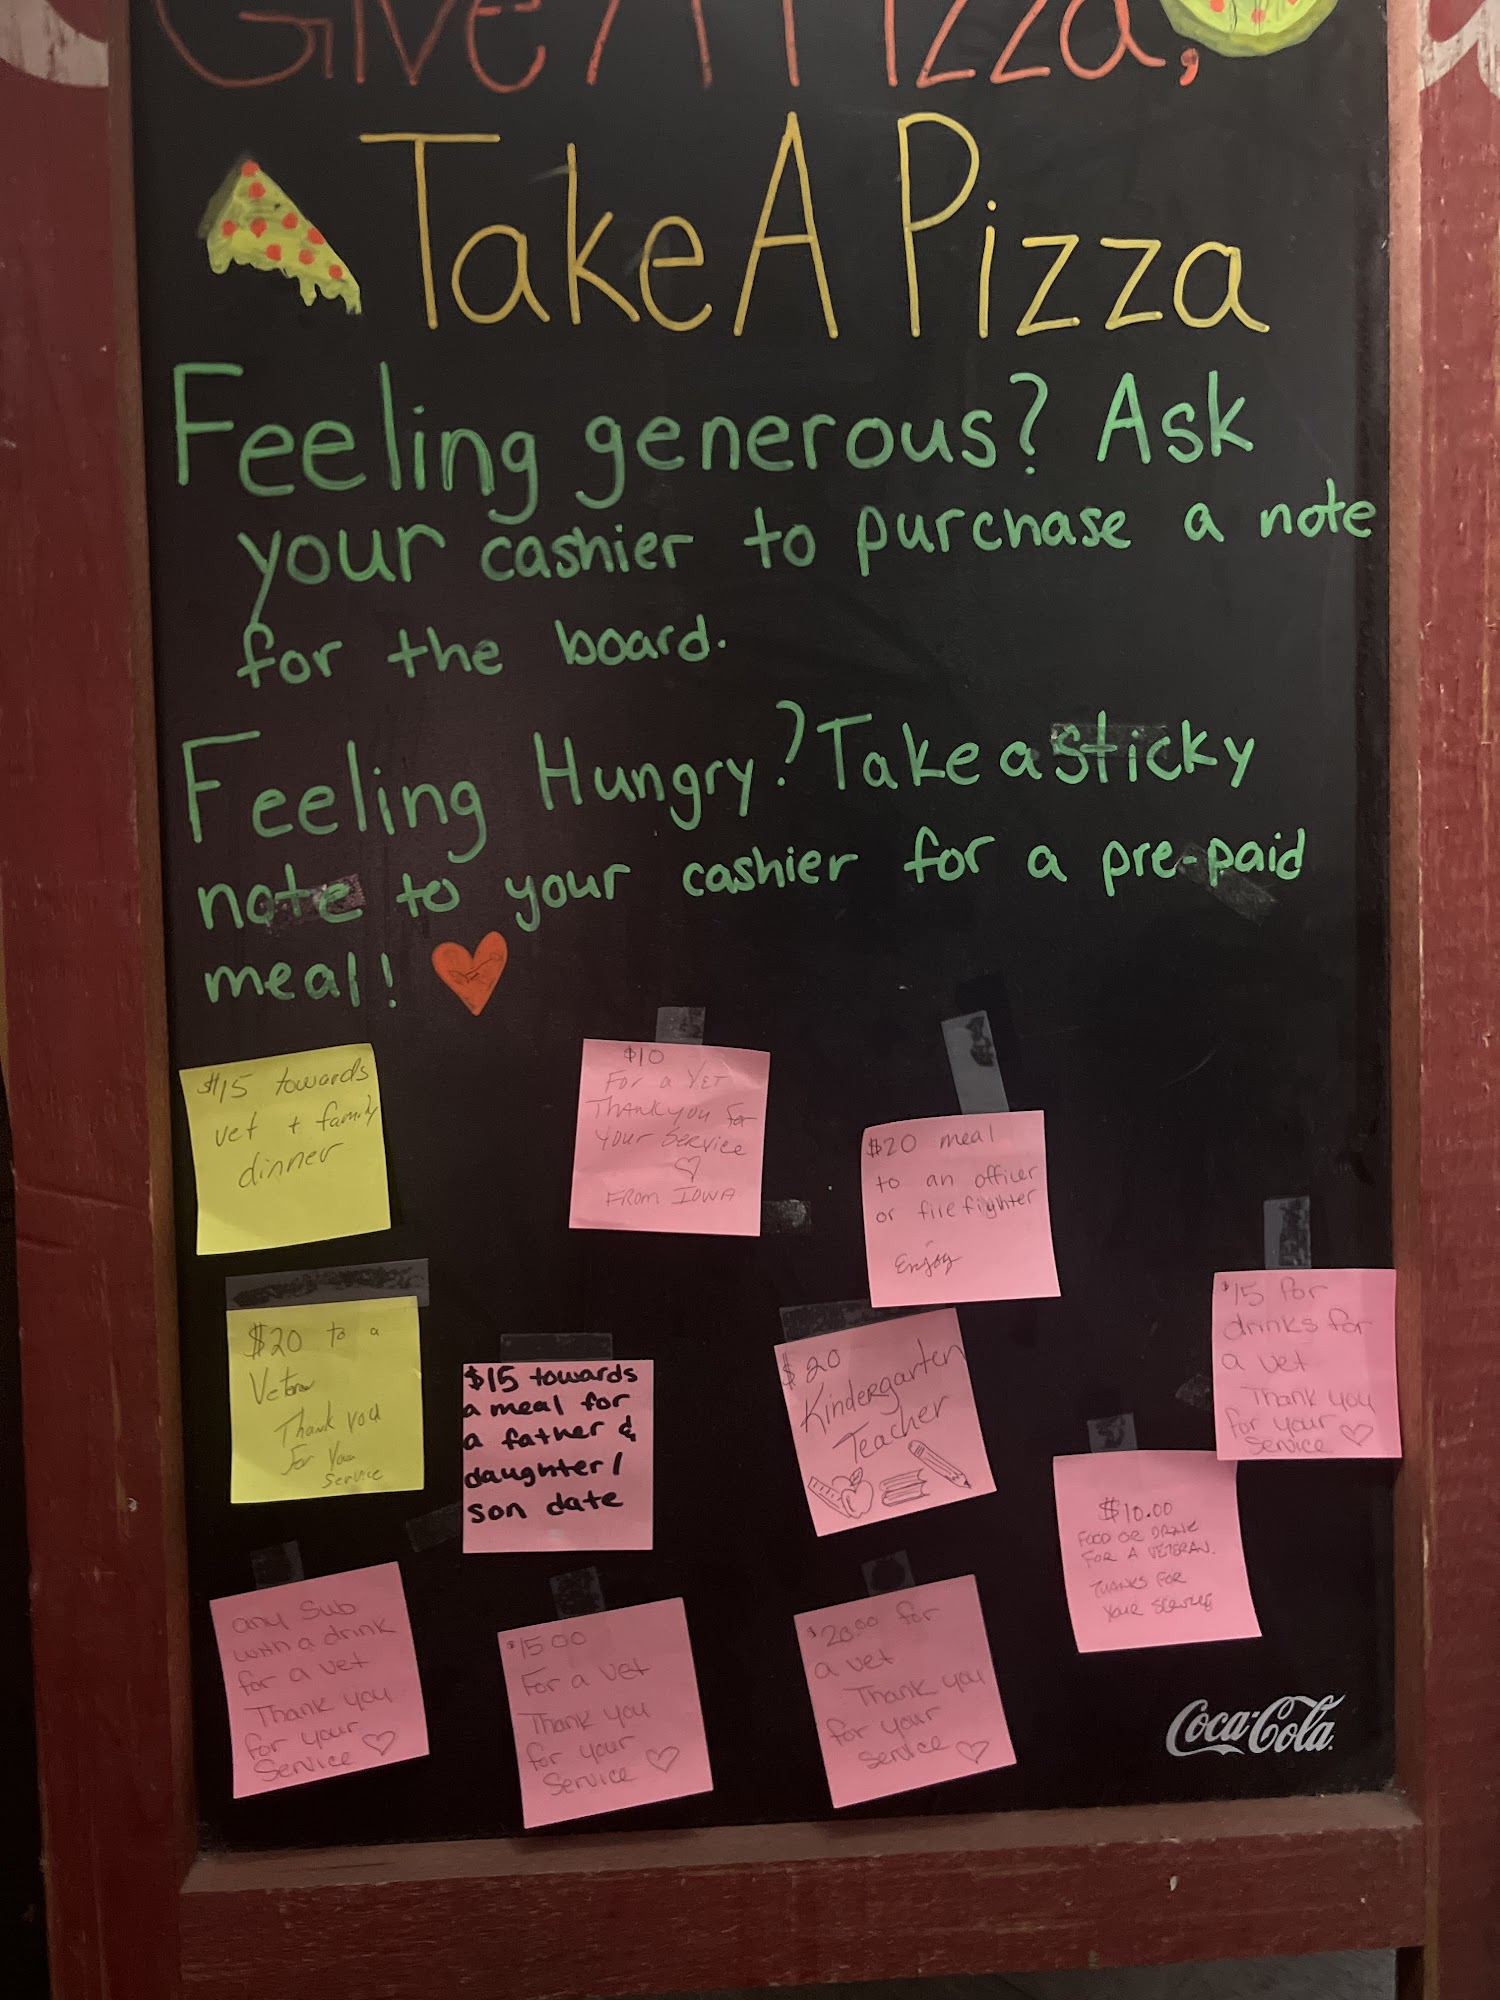 Give A Pizza,
Take A Pizza
Feeling generous? Ask
your cashier to purchase a note
for the board.
Feeling Hungry? Take a sticky
note to your cashier for a pre-paid
meal!
$15 towards
vet + family
dinner
$10
For a VET
THANK you For
your Service
FROM IOWA
$20 meal
to an officer
or firefighter
Enjoy
$20 to a
Veteran
Thank you
For Your
Service
$15 towards
a meal for
a father &
daughter/
son date
$20
Kindergarten
Teacher
$15 for
drinks for
a vet
Thank you
for your
Service
$10.00
FOOD OR DRINK
FOR A VETERAN.
THANKS FOR
YOUR SERVICE
any Sub
with a drink
for a vet
Thank you
for your
Service
$15.00
For a vet
Thank you
for your
Service
$20.00 for
a vet
Thank you
for your
Service
Coca-Cola